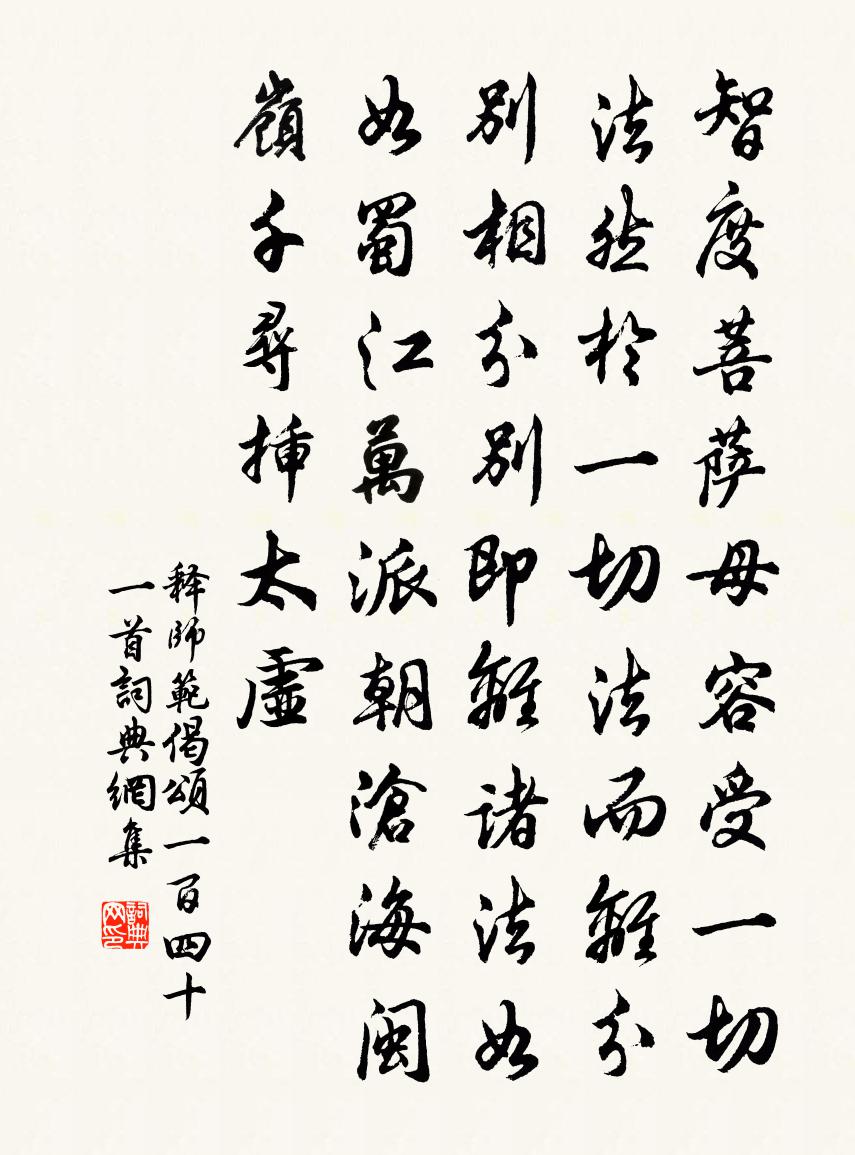 智度菩萨母容受一切
法然於一切法而離分
別相分別即離諸法如
如蜀江萬派朝滄海閩
嶺千尋挿太虛
释師範偈頌一百四十
一首詞典網集
詞典网印